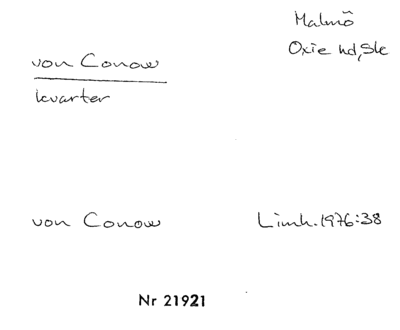 Malmö
Oxie hd, Sk
von Conow
kvarter
von Conow
Limh. 1976:38
Nr 21921